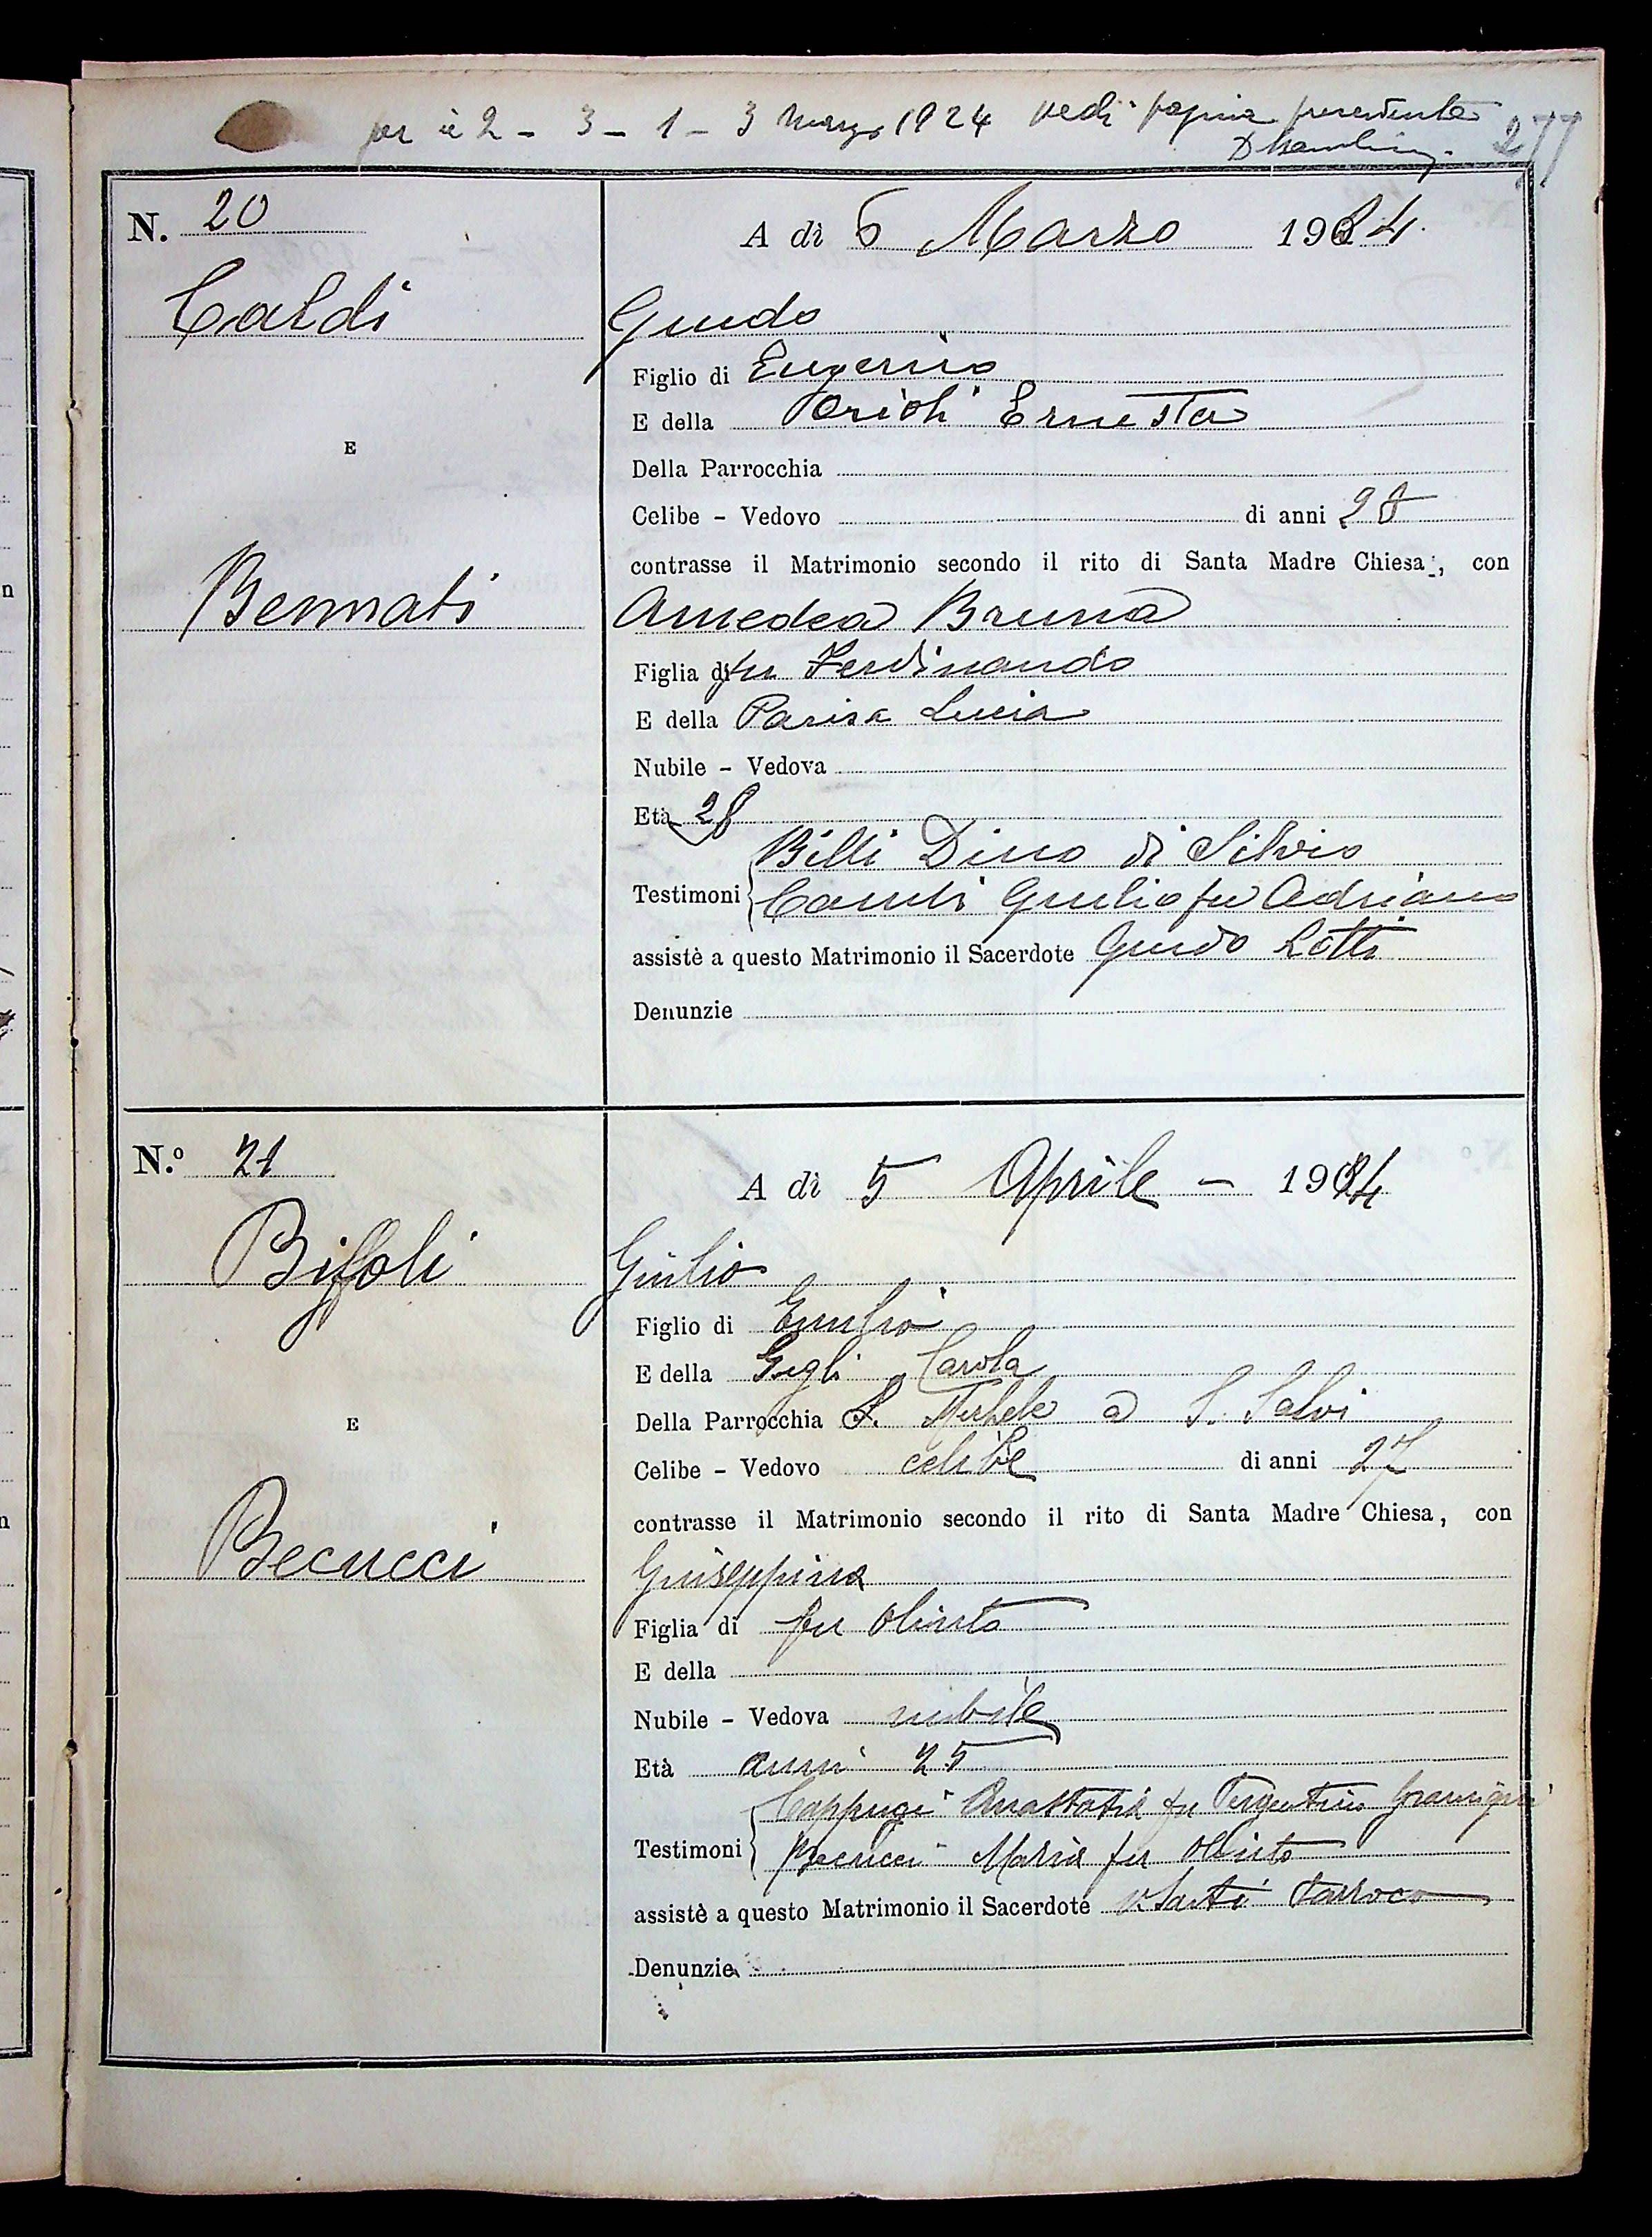 per i 2 - 3 - 1 - 3 marzo 1924 vedi pagina precedente
277
N. 20
A dì 6 Marzo 1924.
Caldi
Guido
Figlio di Eugenio
E della Orioli Ernesta
E
Della Parrocchia
Celibe - Vedovo di anni 28
contrasse il Matrimonio secondo il rito di Santa Madre Chiesa, con
Bennati
Amedea Bruna
Figlia di fu Ferdinando
E della Parisa Lucia
Nubile - Vedova
Età 28
Billi Dino di Silvio
Testimoni Giulio fu Adriano
assistè a questo Matrimonio il Sacerdote Guido Lotti
Denunzie
N.º 21
A dì 5 Aprile - 1924
Biffoli
Giulio
Figlio di Emilio
E della Gigli Carola
E
Della Parrocchia S. Michele a S. Salvi
Celibe - Vedovo celibe di anni 27
contrasse il Matrimonio secondo il rito di Santa Madre Chiesa, con
Becucci
Giuseppina
Figlia di fu Olinto
E della
Nubile - Vedova nubile
Età anni 25
Cappugi Anastasia fu
Testimoni Becucci Maria fu Olinto
assistè a questo Matrimonio il Sacerdote Parroco
Denunzie